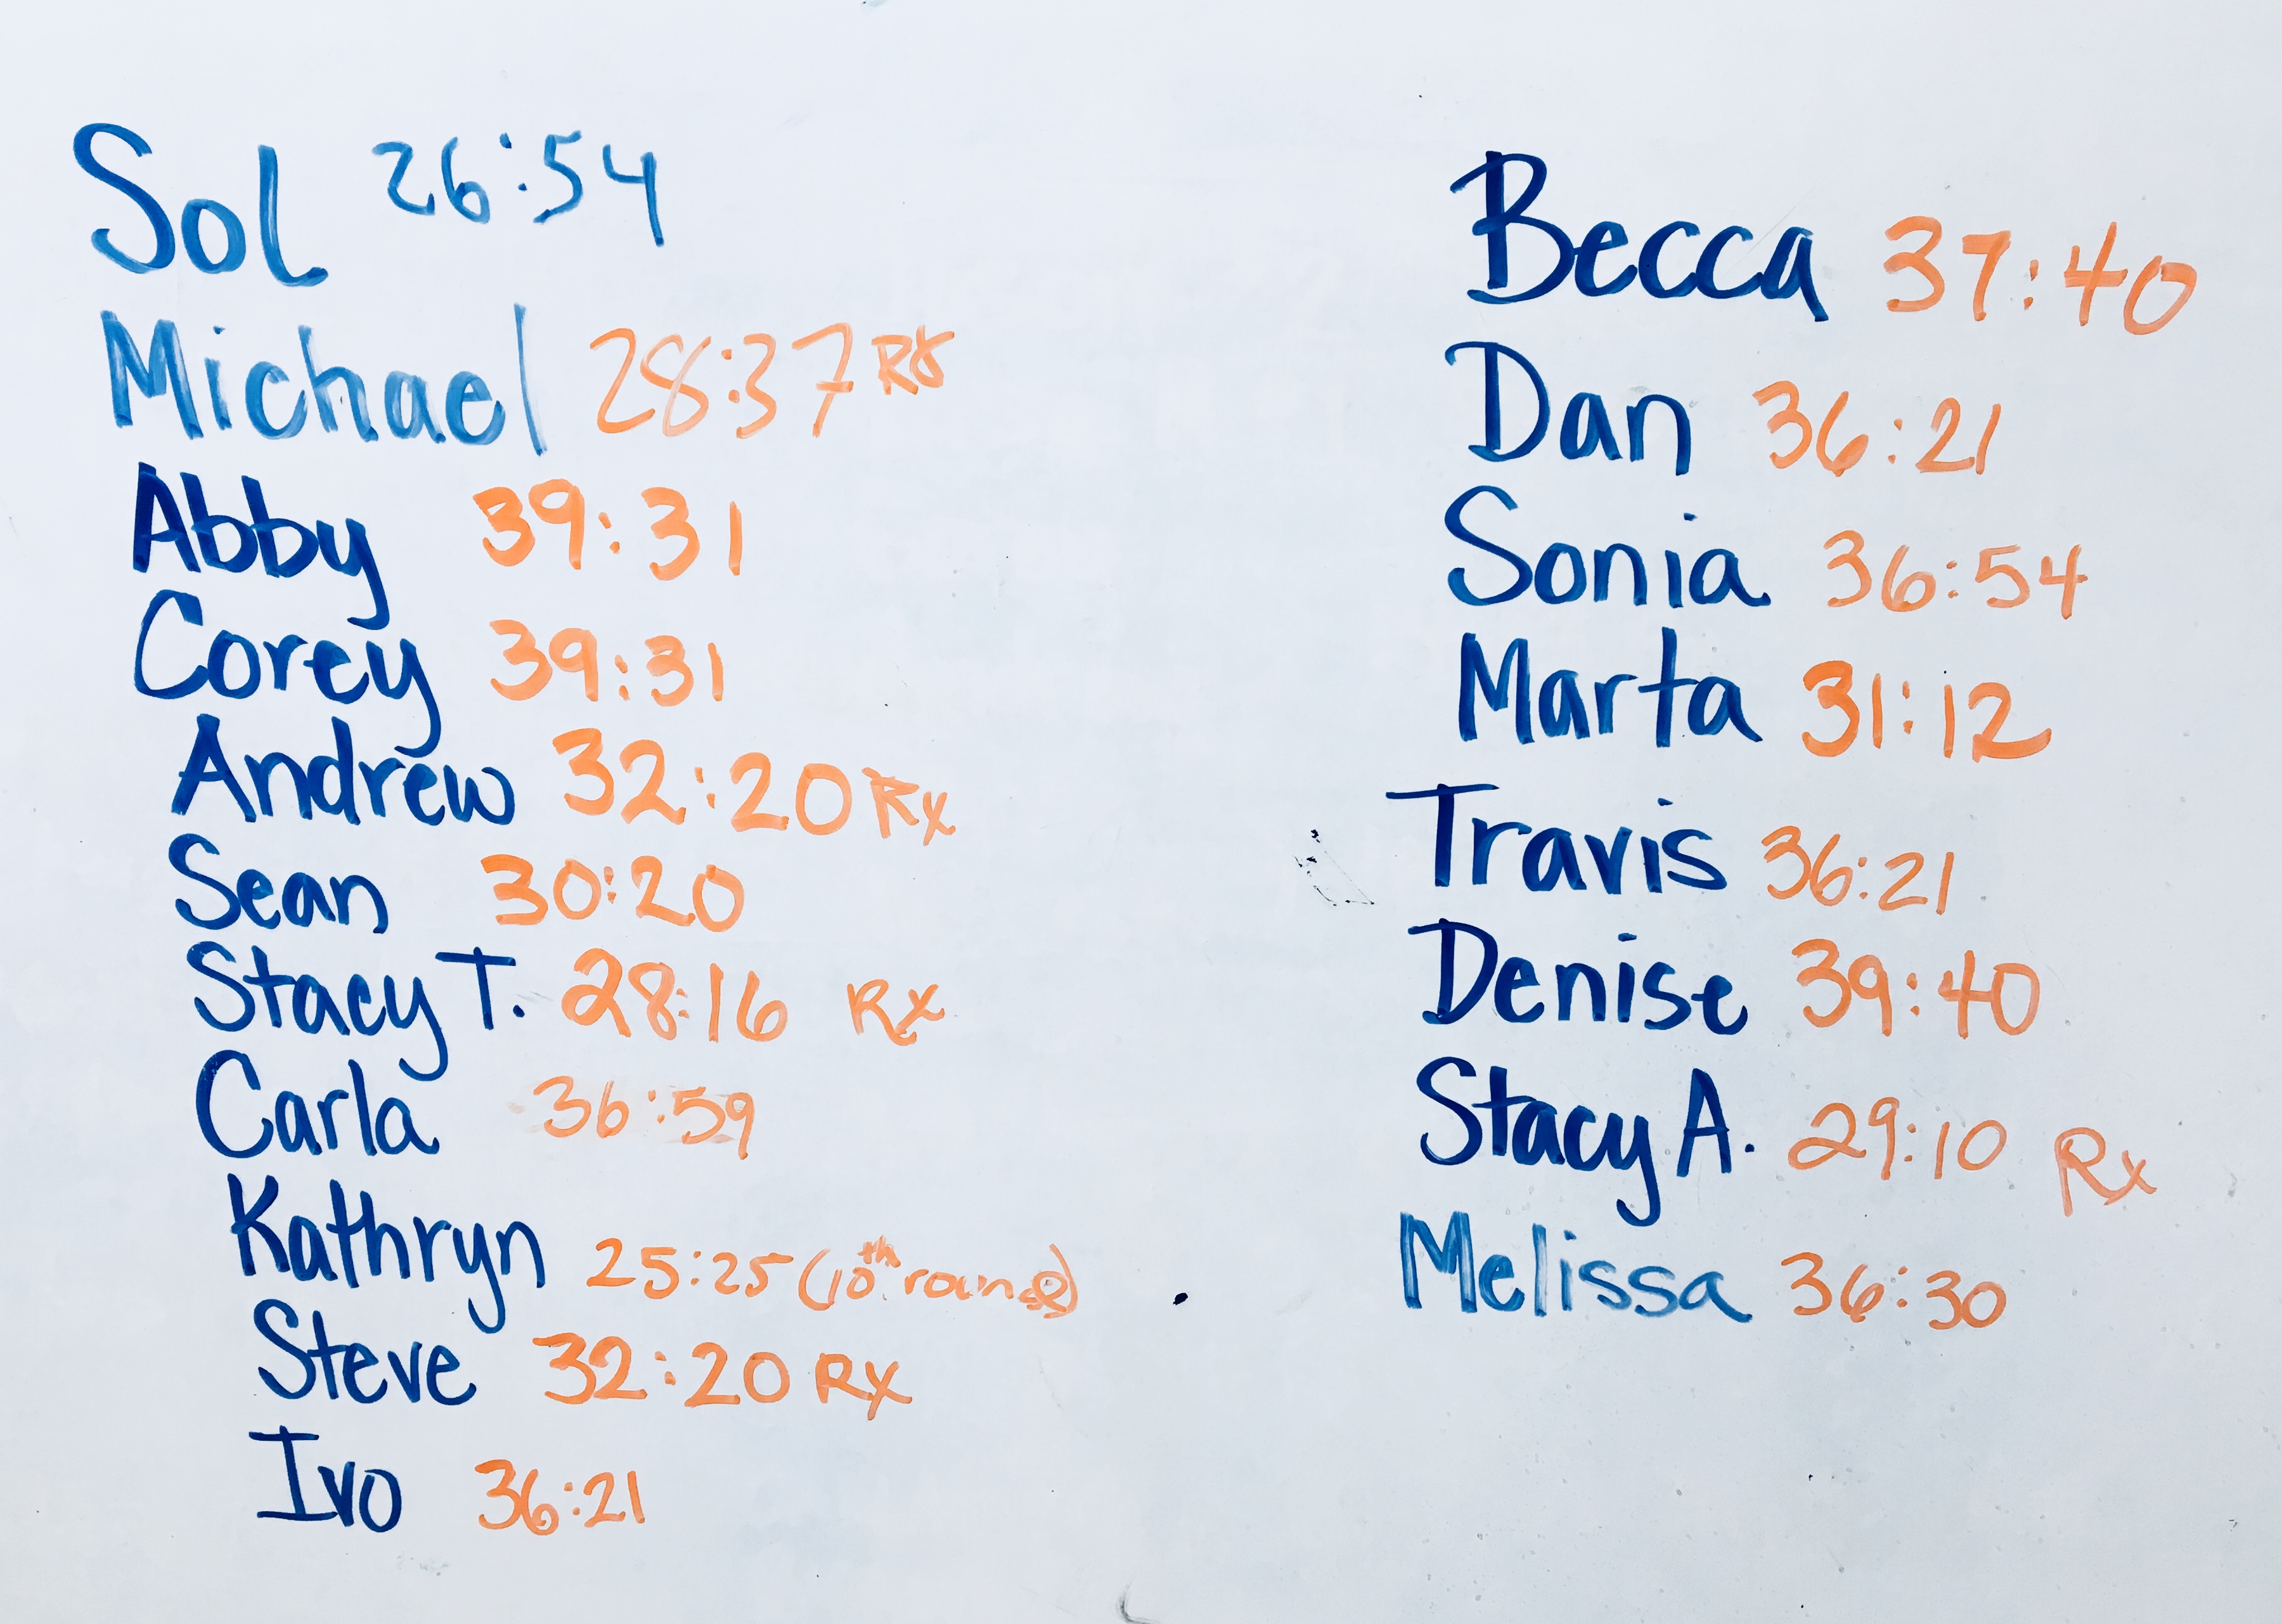 Sol 26:54
Michael 28:37 Rx
Abby 39:31
Corey 39:31
Andrew 32:20 Rx
Sean 30:20
Stacy T. 28:16 Rx
Carla 36:59
Kathryn 25:25 (10th round)
Steve 32:20 Rx
Ivo 36:21
Becca 37:40
Dan 36:21
Sonia 36:54
Marta 31:12
Travis 36:21
Denise 39:40
Stacy A. 29:10 Rx
Melissa 36:30